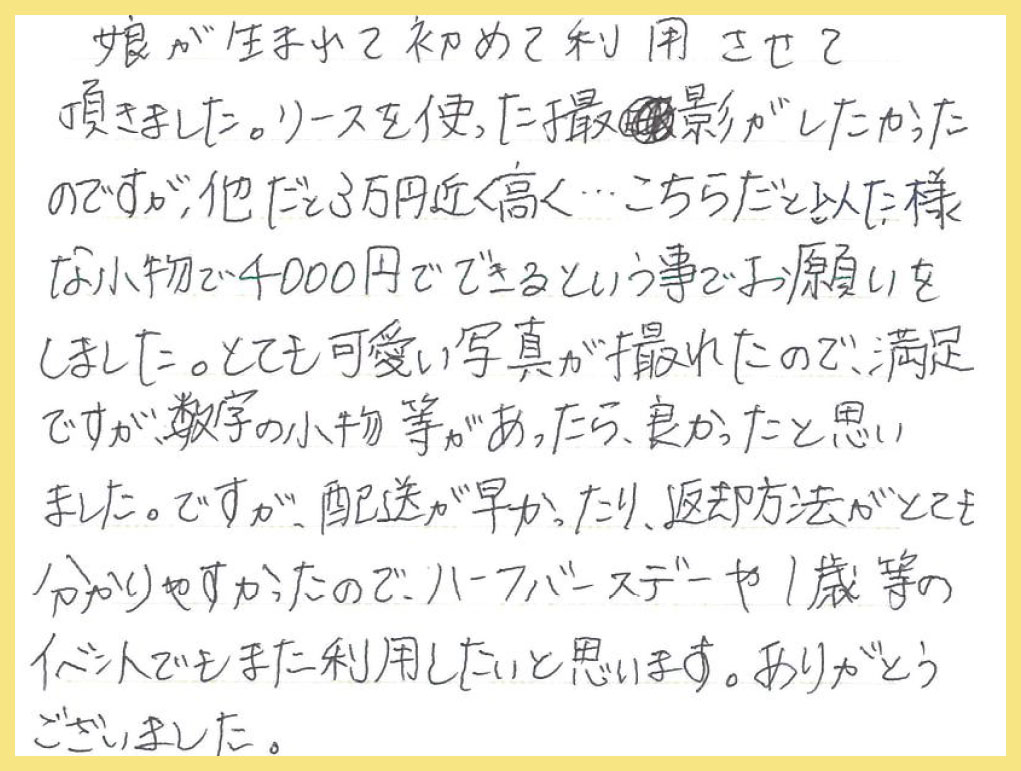 娘が生まれて初めて利用させて
頂きました。リースを使った撮影がしたかった
のですが、他だと3万円近く高く…こちらだと似た様
な小物で4000円でできるという事でお願いを
しました。とても可愛い写真が撮れたので、満足
ですが、数字の小物等があったら、良かったと思い
ました。ですが、配送が早かったり、返却方法がとても
分かりやすかったので、ハーフバースデーや1歳等の
イベントでもまた利用したいと思います。ありがとう
ございました。